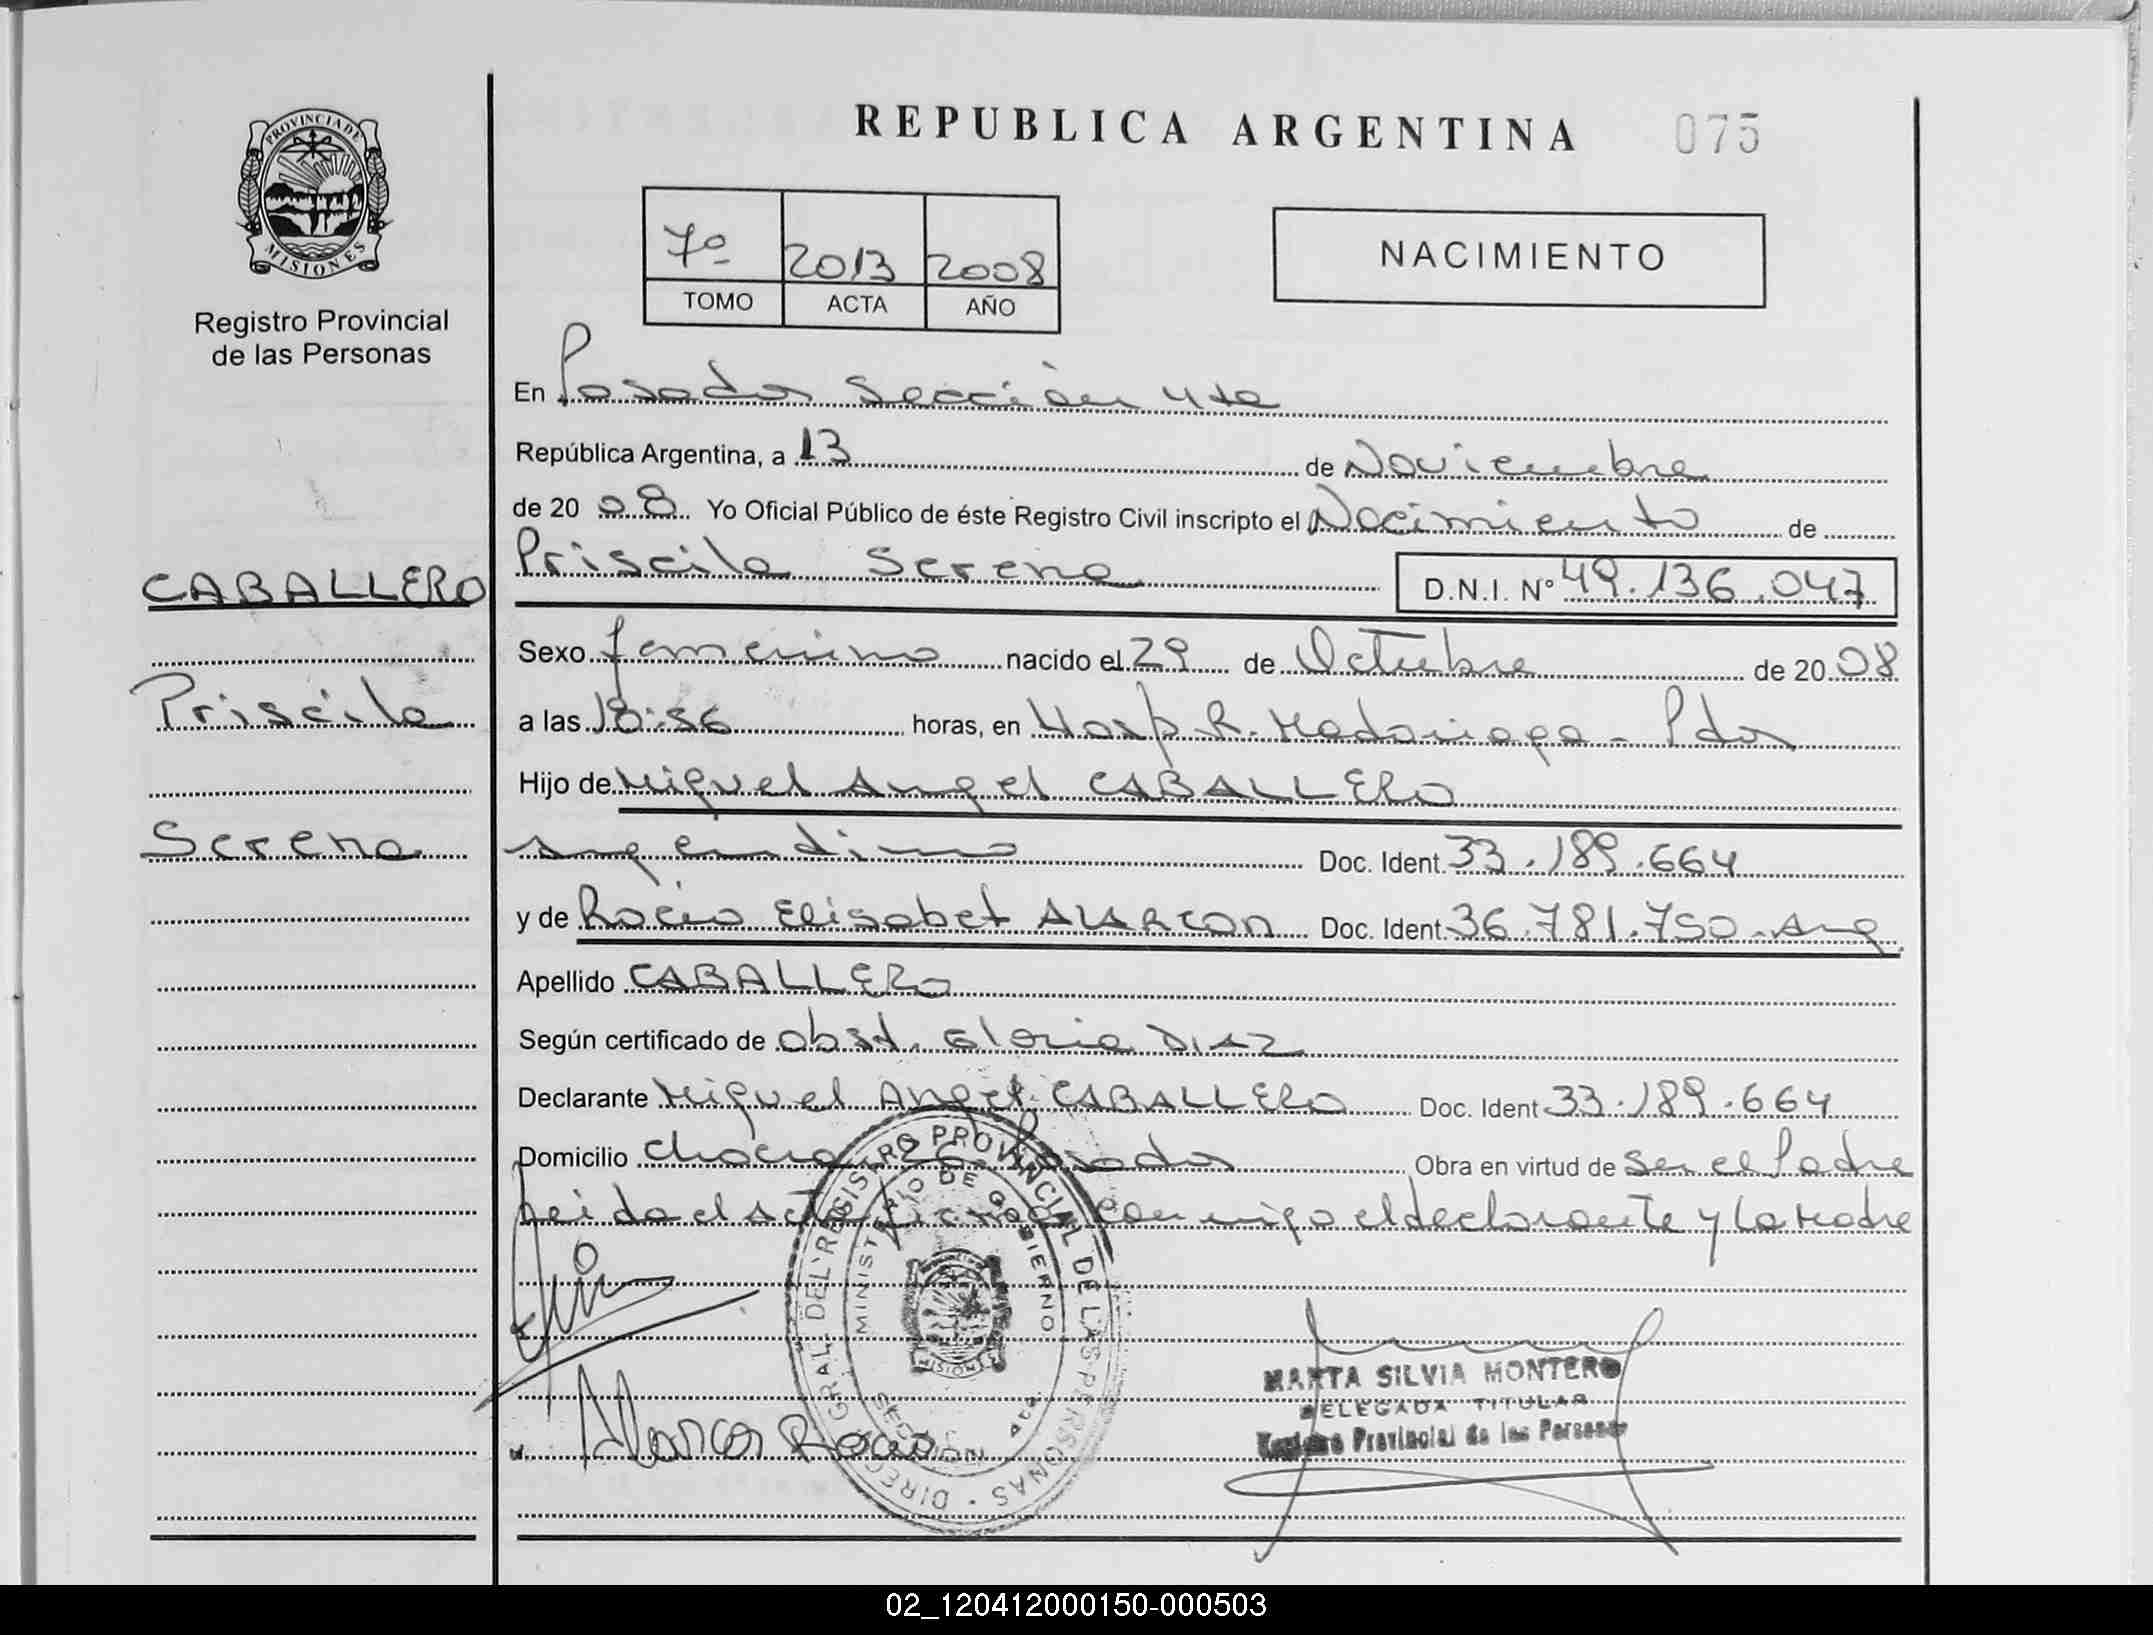 REPUBLICA ARGENTINA 075
PROVINCIA DE
MISIONES
Registro Provincial
de las Personas
7º 2013 2008
TOMO ACTA AÑO
NACIMIENTO
En Posadas Sección 4ta
República Argentina, a 13 de Noviembre
de 20 08 Yo Oficial Público de éste Registro Civil inscripto el Nacimiento de
CABALLERO
Priscila
Serena
Priscila Serena D.N.I. Nº 49.136.047
Sexo femenino nacido el 29 de Octubre de 20 08
a las 18:56 horas, en Hosp R. Madariaga - Pdas
Hijo de Miguel Angel CABALLERO
argentino Doc. Ident. 33.189.664
y de Rocio Elisabet ALARCON Doc. Ident. 36.781.750 - Arg.
Apellido CABALLERO
Según certificado de Obst. Gloria DIAZ
Declarante Miguel Angel CABALLERO Doc. Ident 33.189.664
Domicilio chacra 26 Posadas Obra en virtud de Ser el Padre
Leida el acta firman conmigo el declarante y la Madre
DIREC. GRAL. DEL REGISTRO PROVINCIAL DE LAS PERSONAS
MINISTERIO DE GOBIERNO
MISIONES
MARTA SILVIA MONTERO
DELEGADA TITULAR
Registro Provincial de las Personas
Alarcon Rocio
02_120412000150-000503